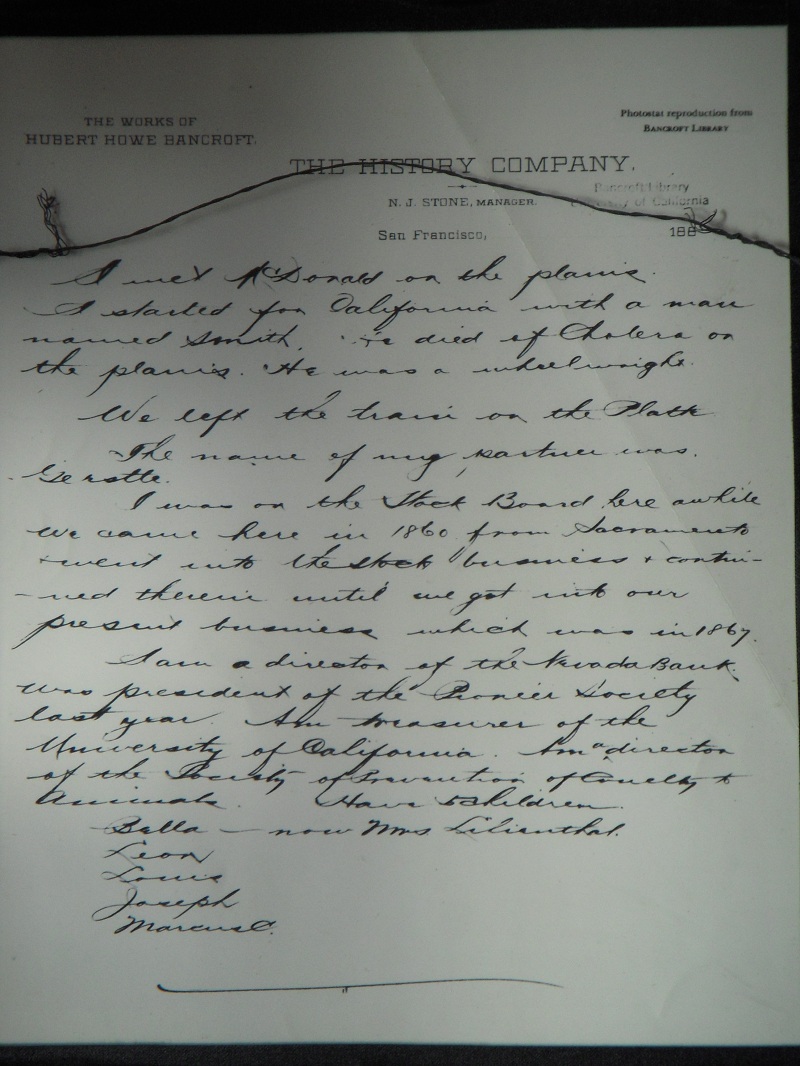 THE WORKS OF
HUBERT HOWE BANCROFT.
Photostat reproduction from
BANCROFT LIBRARY
THE HISTORY COMPANY,
Bancroft Library
University of California
N. J. STONE, MANAGER.
San Francisco, 188
I met McDonald on the plains.
I started for California with a man
named Smith. He died of Cholera on
the plains. He was a wheelwright.
We left the train on the Platte
The name of my partner was
Gerstle.
I was on the Stock Board here awhile
We came here in 1860 from Sacramento
+ went into the stock business + contin-
-ued therein until we got into our
present business which was in 1867.
I am a director of the Nevada Bank.
Was president of the Pioneer Society
last year. Am treasurer of the
University of California. Am a director
of the Society of Prevention of Cruelty to
Animals. Have 5 children.
Bella — now Mrs Lilienthal.
Leon
Louis
Joseph
Marcus C.